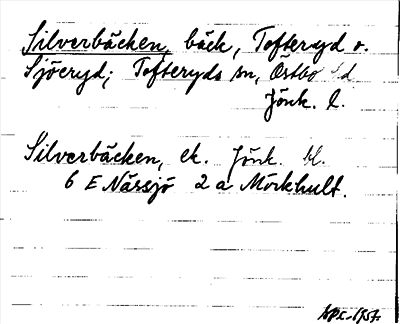 Silverbäcken, bäck, Tofteryd o.
Sjöeryd; Tofteryds sn, Östbo hd
Jönk. l.
Silverbäcken, ek. Jönk. bl.
6 E Nässjö 2 a Mörkhult.